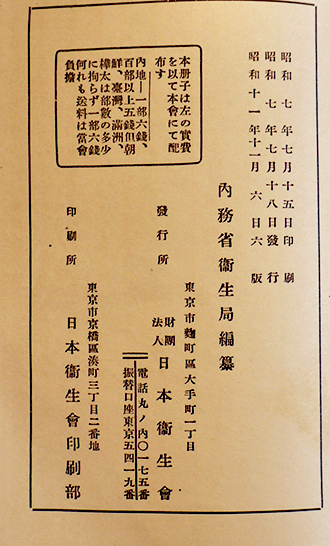 昭和七年七月十五日印刷
昭和七年七月十八日發行
昭和十一年十一月六日六版
內務省衞生局編纂
東京市麴町區大手町一丁目
發行所
財團法人 日本衞生會
電話丸ノ內〇一七五番
振替口座東京五四一九番
東京市京橋區湊町三丁目二番地
印刷所
日本衞生會印刷部
本册子は左の實費
を以て本會にて配
布す
內地―一部六錢、
百部以上五錢但朝
鮮、臺灣、滿洲、
樺太は部數の多少
に拘らず一部六錢
何れも送料は當會
負擔